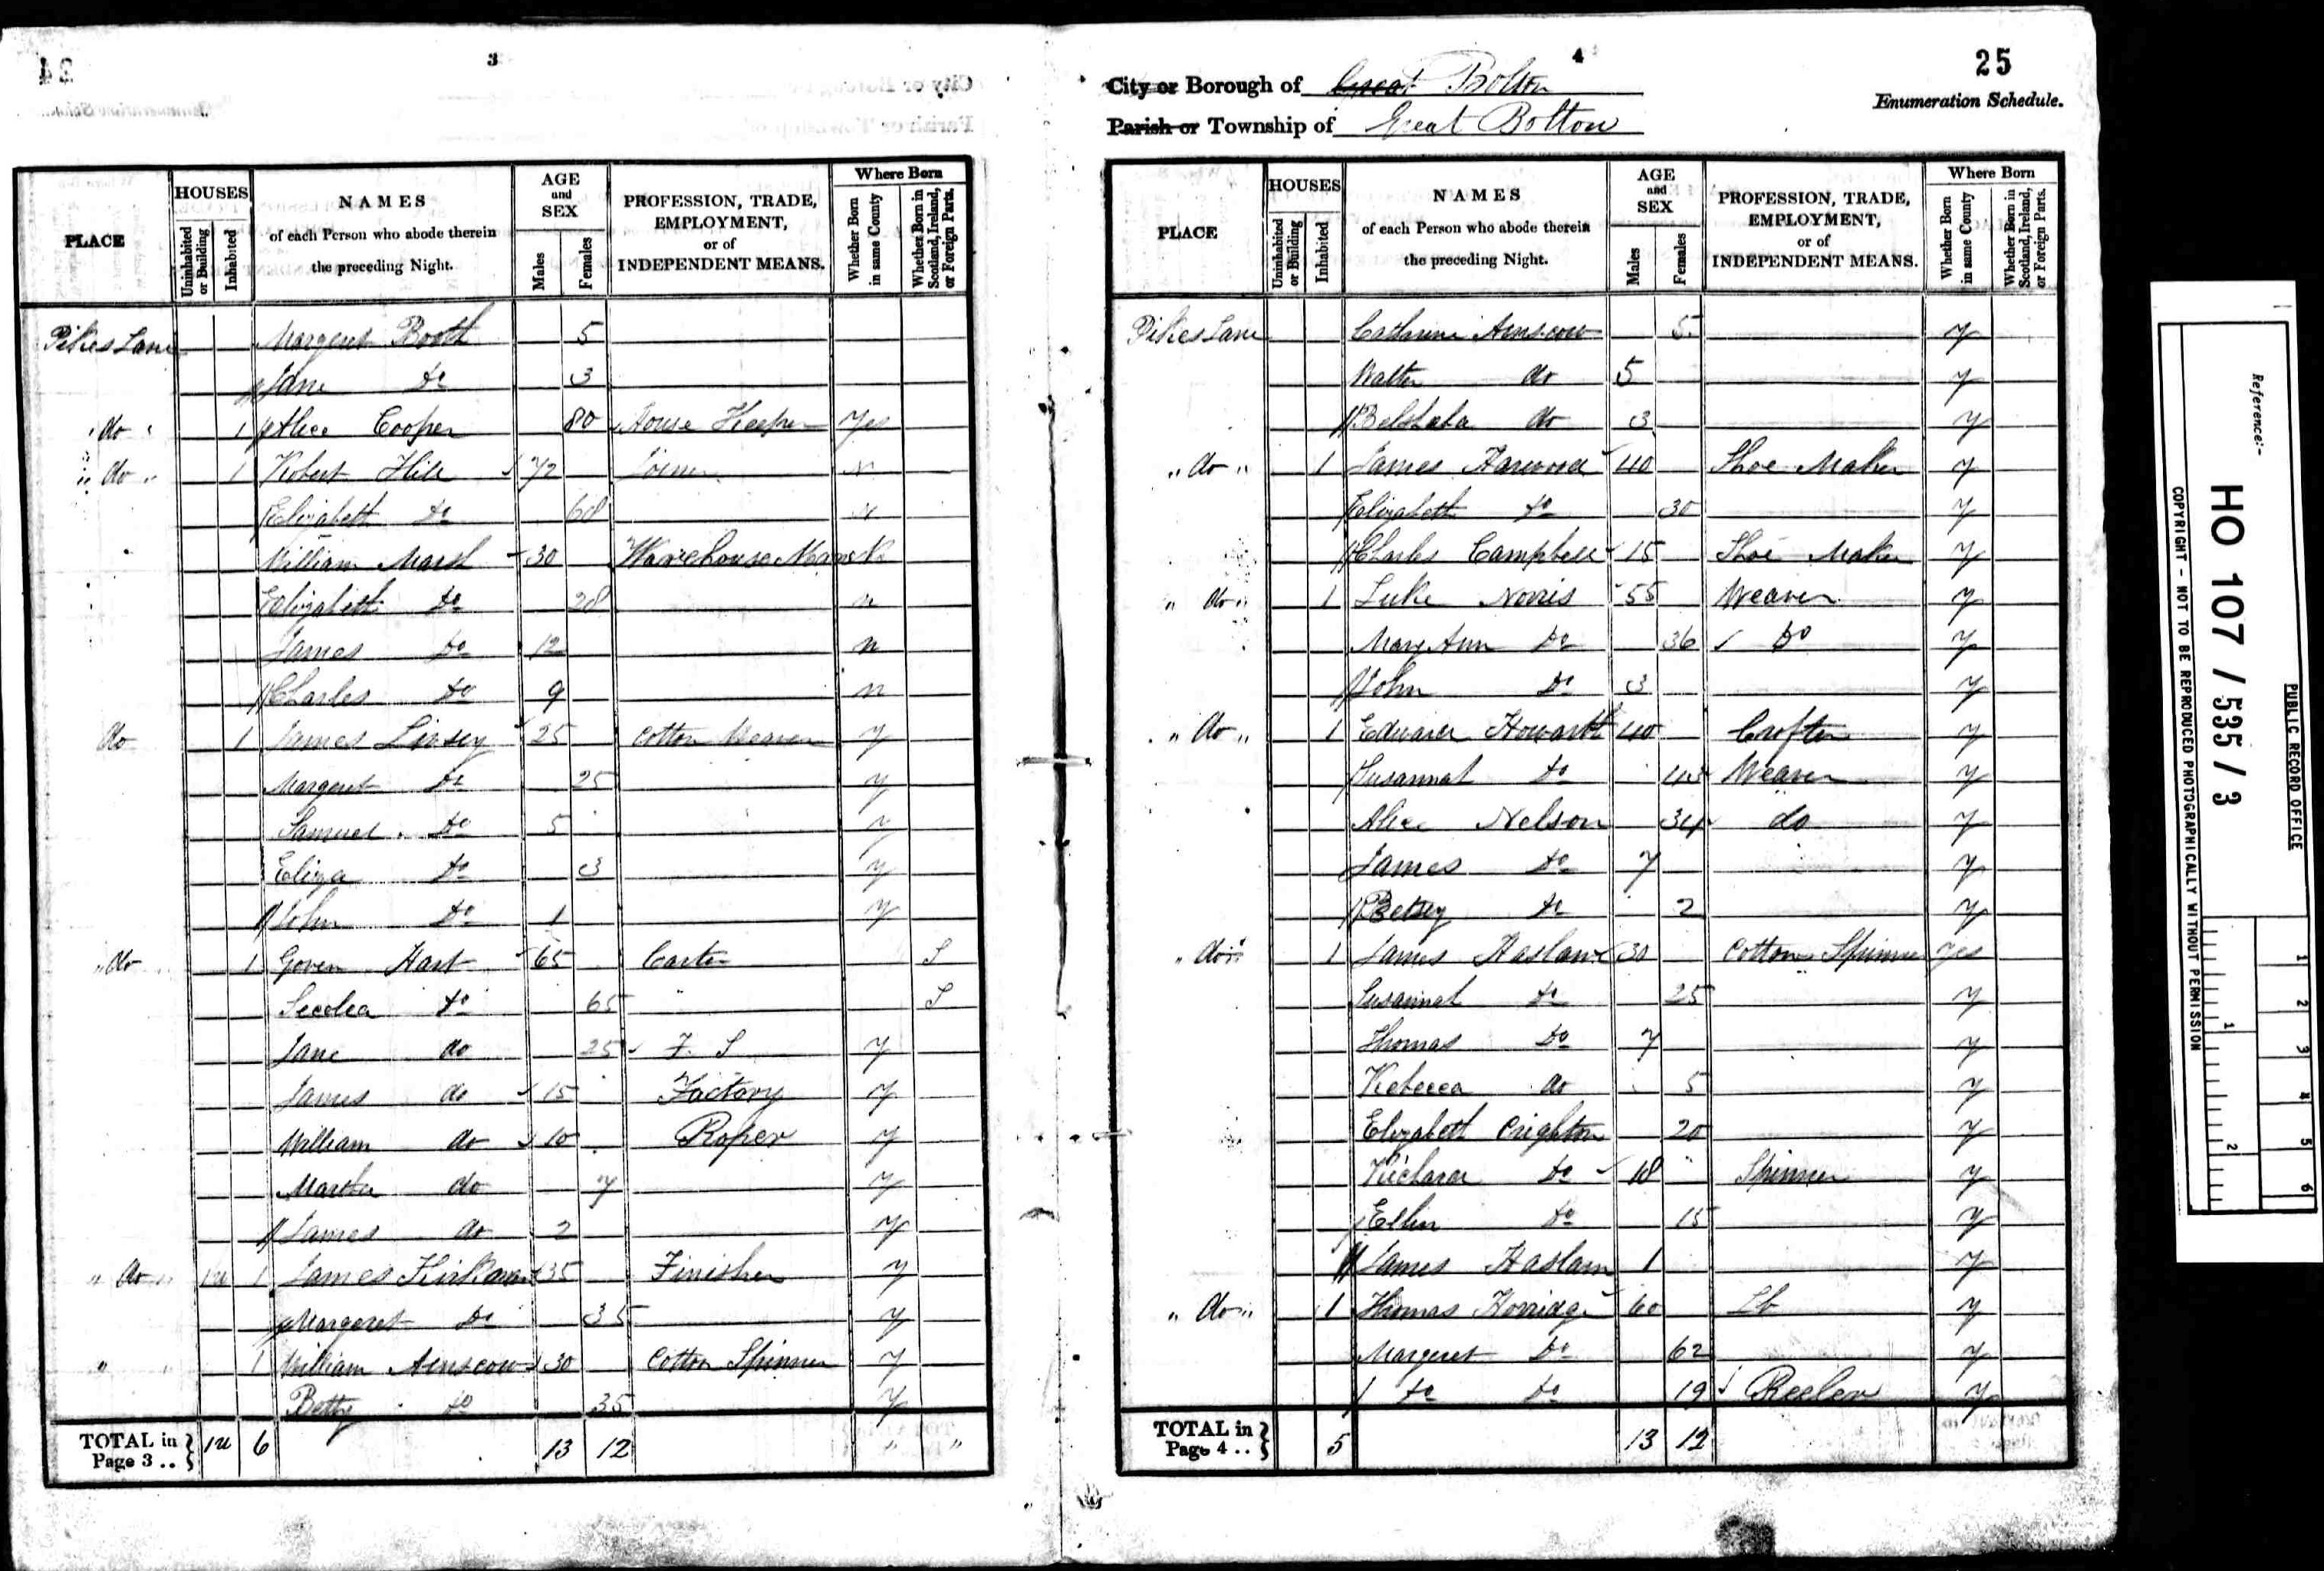 3
HOUSES
NAMES
of each Person who abode therein
the preceding Night.
AGE
and
SEX
PROFESSION, TRADE,
EMPLOYMENT,
or of
INDEPENDENT MEANS.
Where Born
PLACE
Uninhabited
or Building
Inhabited
Males
Females
Whether Born
in same County
Whether Born in
Scotland, Ireland,
or Foreign Parts.
Pikes Lane Margeret Booth 5
Jane Do 3
do 1 Alice Cooper 80 House Keeper Yes
do 1 Robert Hill 72 Joiner N
Elizabeth Do 60 N
William Marsh 30 Warehouse Man N
Elizabeth Do 28 n
James Do 12 n
Charles Do 9 n
do 1 James Livsey 25 Cotton Weaver y
Margeret Do 25 y
Samuel Do 5 y
Eliza Do 3 y
John Do 1 y
do 1 Goven Hart 65 Carter S
Do 65 S
Jane do 25 F. S y
James do 15 Factory y
William do 10 Roper y
Martha do 7 y
James do 2 y
do 1u 1 James Kirkman 35 Finisher y
Margeret Do 35 y
" 1 William Ainscow 30 Cotton Spinner y
Betty do 35 y
TOTAL in
Page 3 .. } 1u 6 13 12
4
25
City or Borough of Great Bolton
Parish or Township of Great Bolton
Enumeration Schedule.
PLACE
HOUSES
Uninhabited
or Building
Inhabited
NAMES
of each Person who abode therein
the preceding Night.
AGE
and
SEX
Males
Females
PROFESSION, TRADE,
EMPLOYMENT,
or of
INDEPENDENT MEANS.
Where Born
Whether Born
in same County
Whether Born in
Scotland, Ireland,
or Foreign Parts.
Pikes Lane Cathrine Ainscow 5 y
Walter do 5 y
do 3 y
" do " 1 James Harwood 40 Shoe Maker y
Elizabeth Do 30 y
Charles Campbell 15 Shoe Maker y
" do " 1 Luke Norris 55 Weaver y
Mary Ann Do 36 Do y
John Do 3 y
" do " 1 Edward Howarth 40 Crofter y
Susannah Do 43 Weaver y
Alice Nelson 34 do y
James Do 7 y
Betsey Do 2 y
" do " 1 James Haslam 30 Cotton Spinner Yes
Susannah Do 25 y
Thomas Do 7 y
Rebecca do 5 y
Elizabeth Crighton 20 y
Richard Do 18 Spinner y
Ellin Do 15 y
James Haslam 1 y
" do " 1 Thomas Horridge 60 Lb y
Margeret Do 62 y
Do Do 19 Reeler y
TOTAL in
Page 4 .. } 5 13 12
PUBLIC RECORD OFFICE
Reference:-
HO 107 / 535 / 3
COPYRIGHT - NOT TO BE REPRODUCED PHOTOGRAPHICALLY WITHOUT PERMISSION
1
2
3
4
5
6
1
2